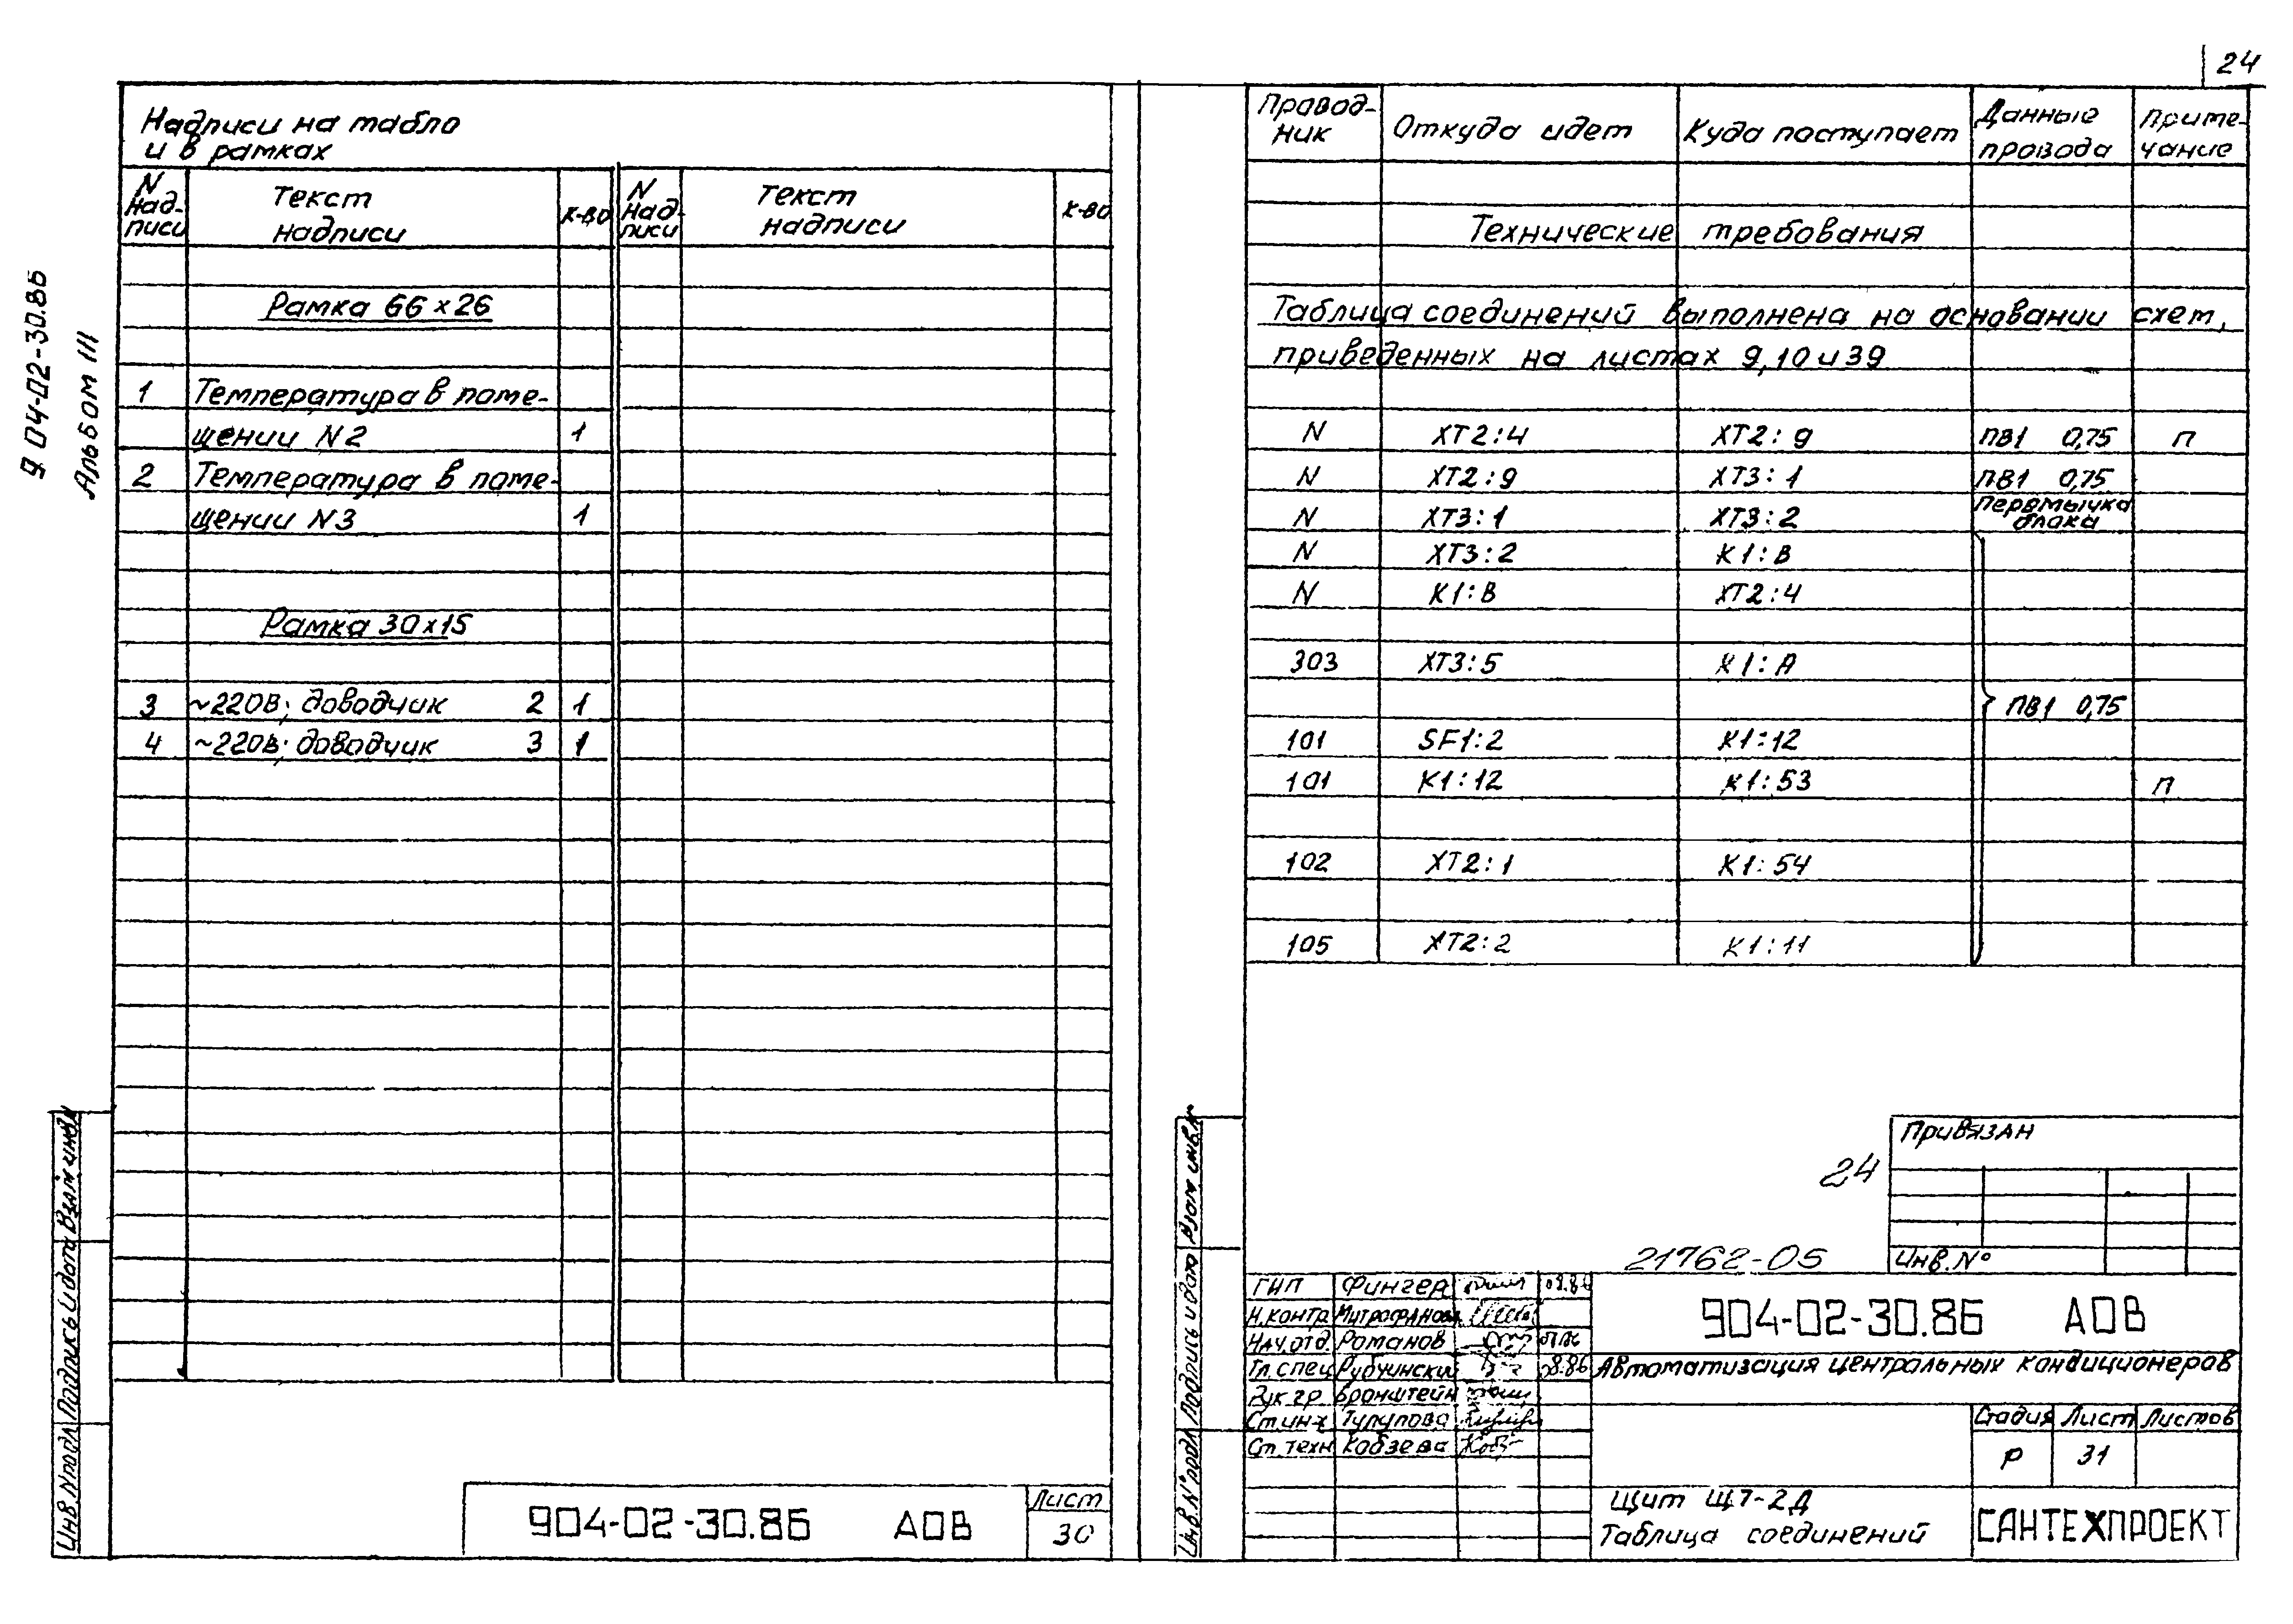 24
904-02-30.86
Альбом III
Надписи на табло
и в рамках
N надписи Текст надписи к-во N надписи Текст надписи к-во
Рамка 66×26
1 Температура в поме-
щении N2 1
2 Температура в поме-
щении N3 1
Рамка 30×15
3 ~220В; доводчик 2 1
4 ~220В; доводчик 3 1
904-02-30.86 АОВ
Лист
30
Инв.Nподл Подпись и дата Взам инв.N
Провод-
ник Откуда идет Куда поступает Данные провода Приме-
чание
Технические требования
Таблица соединений выполнена на основании схем,
приведенных на листах 9,10 и 39
N XT2:4 XT2:9 ПВ1 0,75 п
N XT2:9 XT3:1 ПВ1 0,75
N XT3:1 XT3:2 Перемычка блока
N XT3:2 K1:B
N K1:B XT2:4
303 XT3:5 K1:A
ПВ1 0,75
101 SF1:2 K1:12
101 K1:12 K1:53 п
102 XT2:1 K1:54
105 XT2:2 K1:11
Привязан
24
21762-05
Инв.N°
Инв.N°подл Подпись и дата Взам инв.N°
ГИП Фингер 08.86
Н.контр Митрофанова
Нач.отд. Романов
Гл.спец Рубчинский 08.86
Рук.гр Бронштейн
Ст.инж Тулупова
Ст.техн Кобзева
904-02-30.86 АОВ
Автоматизация центральных кондиционеров
Стадия Лист Листов
Р 31
Щит Щ7-2Д
Таблица соединений
САНТЕХПРОЕКТ